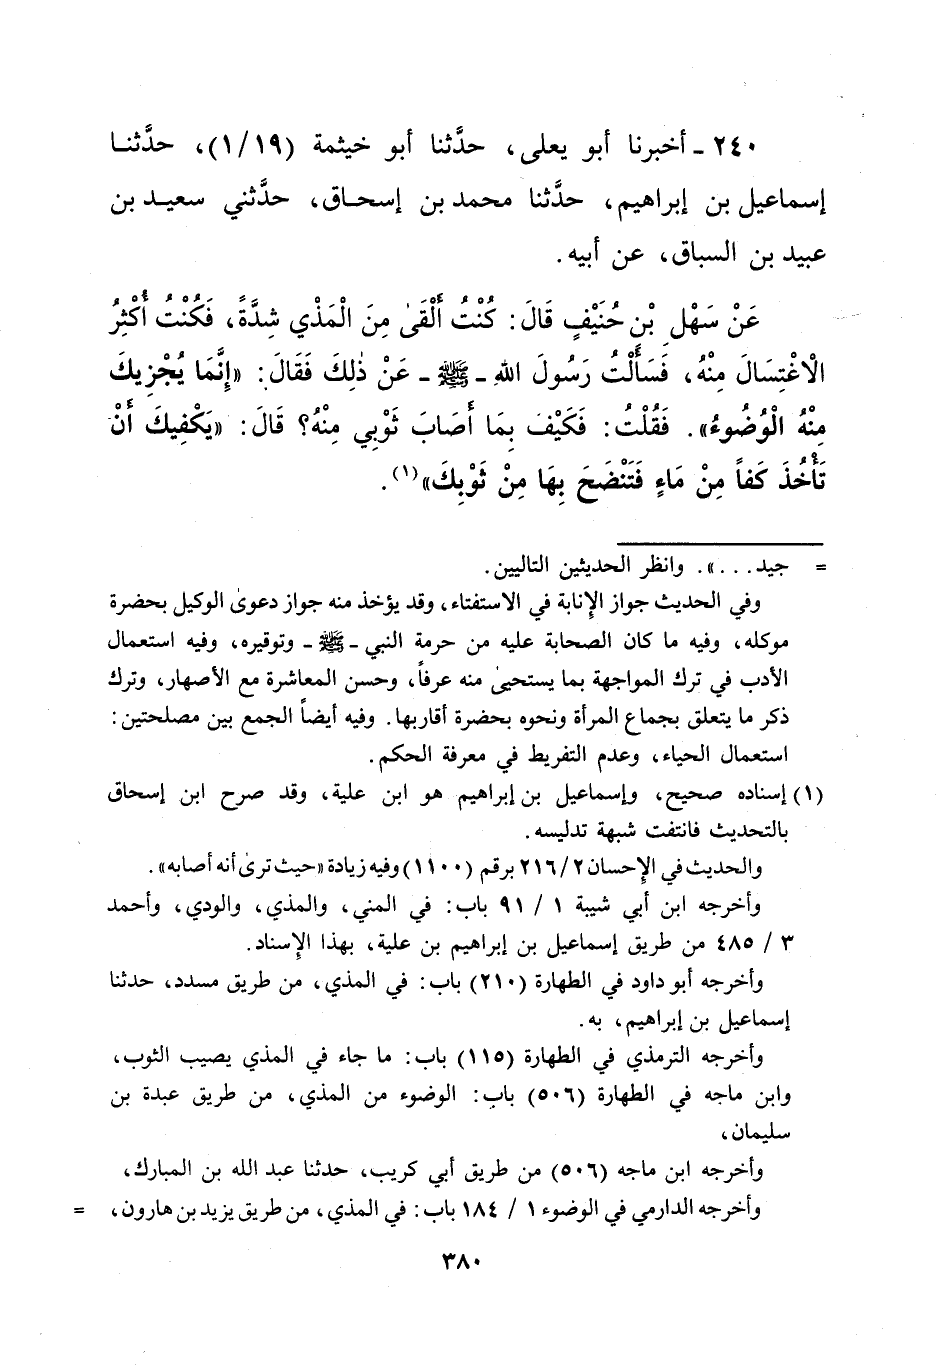 ٢٤٠ - أخبرنا أبو يعلى، حدَّثنا أبو خيثمة (١/١٩)، حدَّثنا
إسماعيل بن إبراهيم، حدَّثنا محمد بن إسحاق، حدَّثني سعيد بن
عبيد بن السباق، عن أبيه.
عَنْ سَهْلِ بْنِ حُنَيْفٍ قَالَ: كُنْتُ أَلْقَىٰ مِنَ الْمَذْيِ شِدَّةً، فَكُنْتُ أُكْثِرُ
الْاغْتِسَالَ مِنْهُ، فَسَأَلْتُ رَسُولَ اللهِ - ﷺ - عَنْ ذٰلِكَ فَقَالَ: «إِنَّمَا يُجْزِيكَ
مِنْهُ الْوُضُوءُ». فَقُلْتُ: فَكَيْفَ بِمَا أَصَابَ ثَوْبِي مِنْهُ؟ قَالَ: «يَكْفِيكَ أَنْ
تَأْخُذَ كَفاً مِنْ مَاءٍ فَتَنْضَحَ بِهَا مِنْ ثَوْبِكَ»(١).
= جيد...». وانظر الحديثين التاليين.
وفي الحديث جواز الإنابة في الاستفتاء، وقد يؤخذ منه جواز دعوى الوكيل بحضرة
موكله، وفيه ما كان الصحابة عليه من حرمة النبي - ﷺ - وتوقيره، وفيه استعمال
الأدب في ترك المواجهة بما يستحيىٰ منه عرفاً، وحسن المعاشرة مع الأصهار، وترك
ذكر ما يتعلق بجماع المرأة ونحوه بحضرة أقاربها. وفيه أيضاً الجمع بين مصلحتين:
استعمال الحياء، وعدم التفريط في معرفة الحكم.
(١) إسناده صحيح، وإسماعيل بن إبراهيم هو ابن علية، وقد صرح ابن إسحاق
بالتحديث فانتفت شبهة تدليسه.
والحديث في الإحسان ٢١٦/٢ برقم (١١٠٠) وفيه زيادة «حيث ترىٰ أنه أصابه».
وأخرجه ابن أبي شيبة ١ / ٩١ باب: في المني، والمذي، والودي، وأحمد
٣ / ٤٨٥ من طريق إسماعيل بن إبراهيم بن علية، بهذا الإسناد.
وأخرجه أبو داود في الطهارة (٢١٠) باب: في المذي، من طريق مسدد، حدثنا
إسماعيل بن إبراهيم، به.
وأخرجه الترمذي في الطهارة (١١٥) باب: ما جاء في المذي يصيب الثوب،
وابن ماجه في الطهارة (٥٠٦) باب: الوضوء من المذي، من طريق عبدة بن
سليمان،
وأخرجه ابن ماجه (٥٠٦) من طريق أبي كريب، حدثنا عبد الله بن المبارك،
وأخرجه الدارمي في الوضوء ١ / ١٨٤ باب: في المذي، من طريق يزيد بن هارون، =
٣٨٠